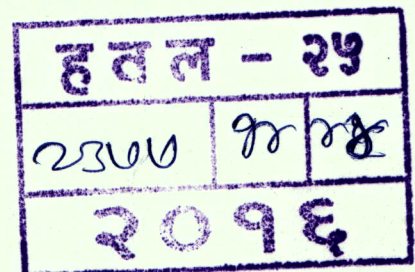 हवल - २५
२३७७ १४
२०१६